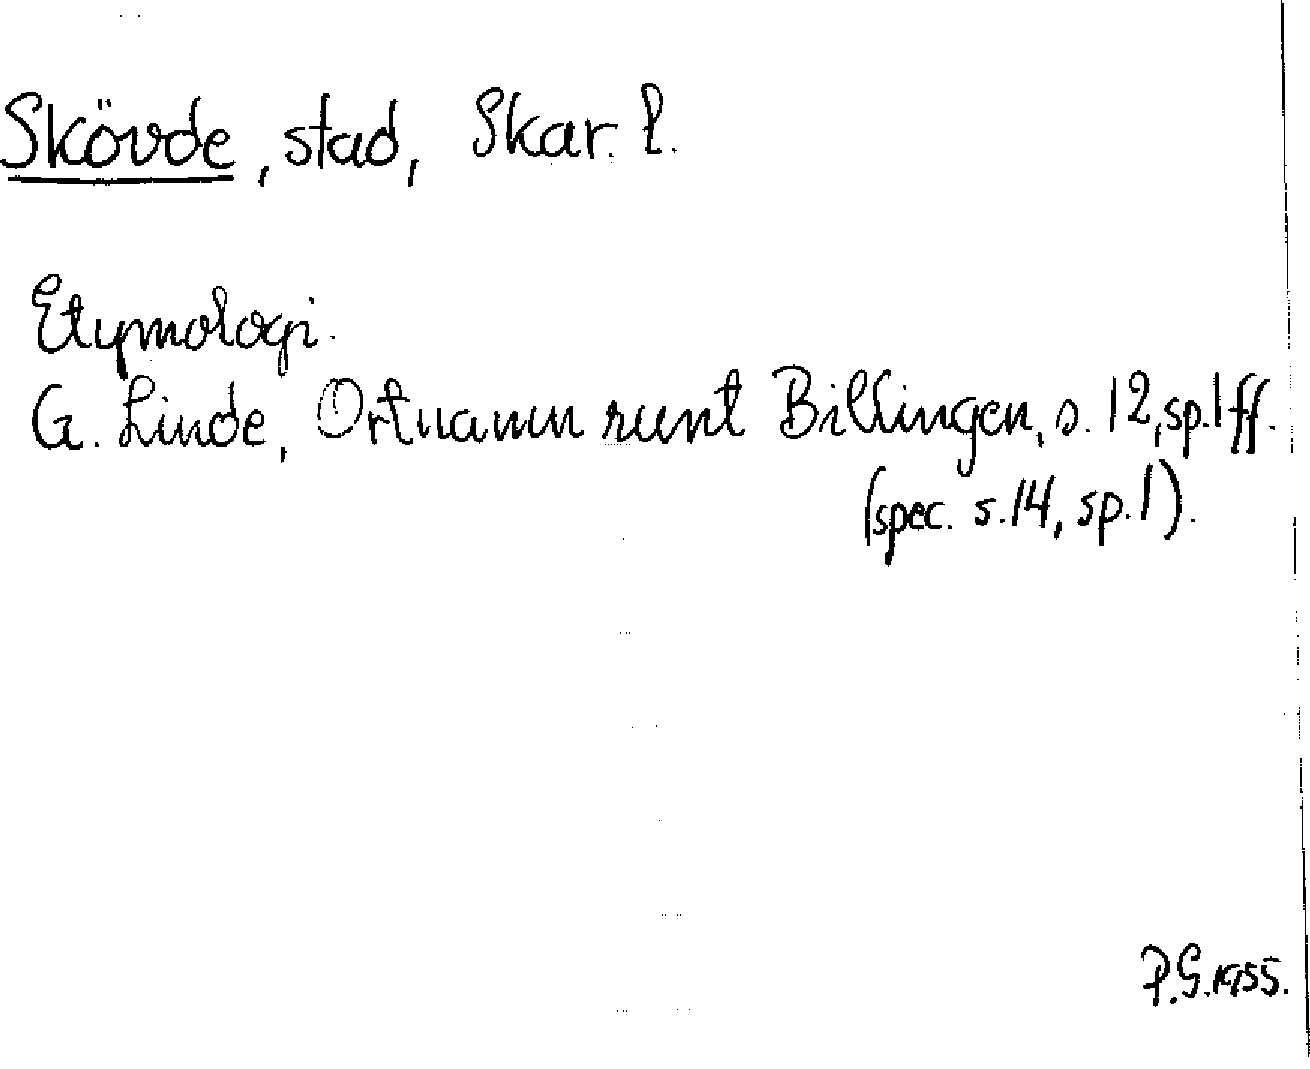 Skövde, stad, Skar. l.
Etymologi.
G. Linde, Ortnamn runt Billingen, s. 12, sp. 1 ff.
(spec. s. 14, sp. 1).
P.G. 1955.